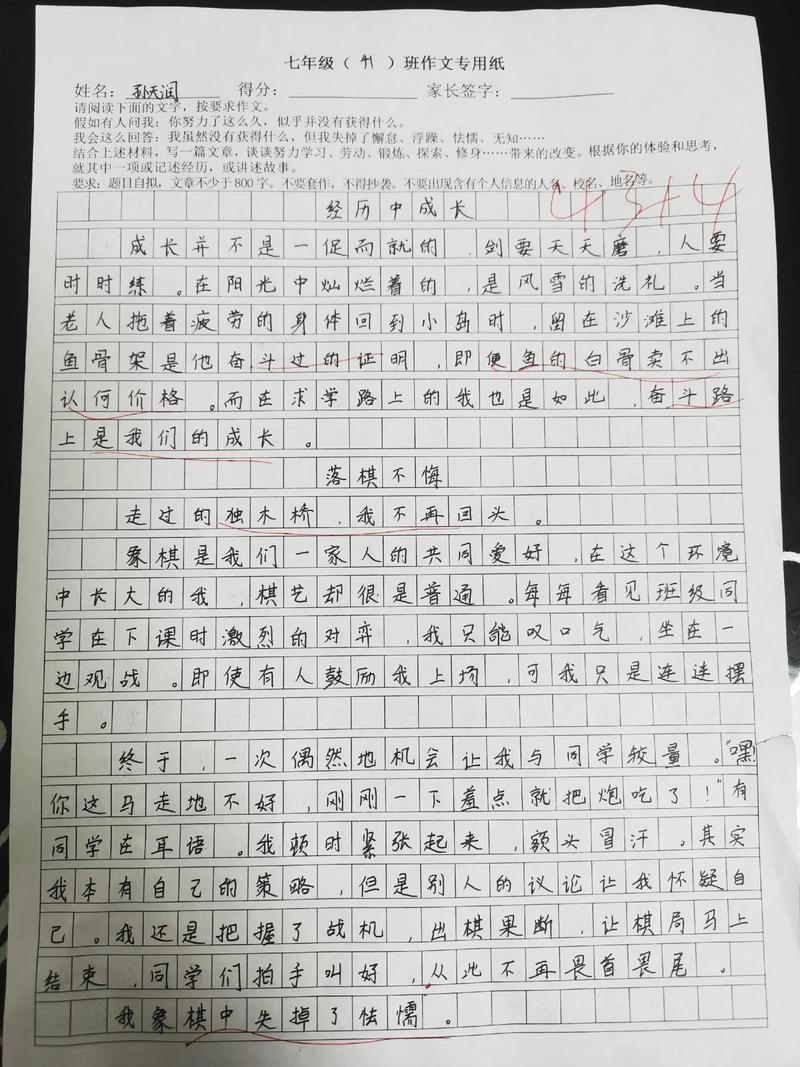 七年级（41）班作文专用纸
姓名：孙天润 得分： 家长签字：
请阅读下面的文字，按要求作文。
假如有人问我：你努力了这么久，似乎并没有获得什么。
我会这么回答：我虽然没有获得什么，但我失掉了懈怠、浮躁、怯懦、无知……
结合上述材料，写一篇文章，谈谈努力学习、劳动、锻炼、探索、修身……带来的改变。根据你的体验和思考，
就其中一项或记述经历，或讲述故事。
要求：题目自拟，文章不少于800字。不要套作，不得抄袭。不要出现含有个人信息的人名、校名、地名等。
43+4
经历中成长
成长并不是一促而就的，剑要天天磨，人要
时时练。在阳光中灿烂着的，是风雪的洗礼。当
老人拖着疲劳的身体回到小岛时，留在沙滩上的
鱼骨架是他奋斗过的证明，即便鱼的白骨卖不出
认何价格。而在求学路上的我也是如此，奋斗路
上是我们的成长。
落棋不悔
走过的独木桥，我不再回头。
象棋是我们一家人的共同爱好，在这个环境
中长大的我，棋艺却很是普通。每每看见班级同
学在下课时激烈的对弈，我只能叹口气，坐在一
边观战。即使有人鼓励我上场，可我只是连连摆
手。
终于，一次偶然地机会让我与同学较量。“嘿
你这马走地不好，刚刚一下差点就把炮吃了！”有
同学在耳语。我顿时紧张起来，额头冒汗。其实
我本有自己的策略，但是别人的议论让我怀疑自
己。我还是把握了战机，出棋果断，让棋局马上
结束，同学们拍手叫好，从此不再畏首畏尾。
我象棋中失掉了怯懦。